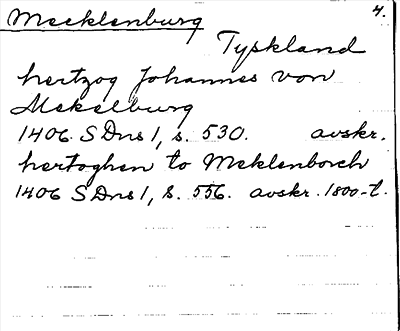 Mecklenburg 4.
Tyskland
hertzog Johannes von
Mekelburg
1406 SDns 1, s. 530. avskr.
hertoghen to Meklenborch
1406 SDns 1, s. 556. avskr. 1800-t.